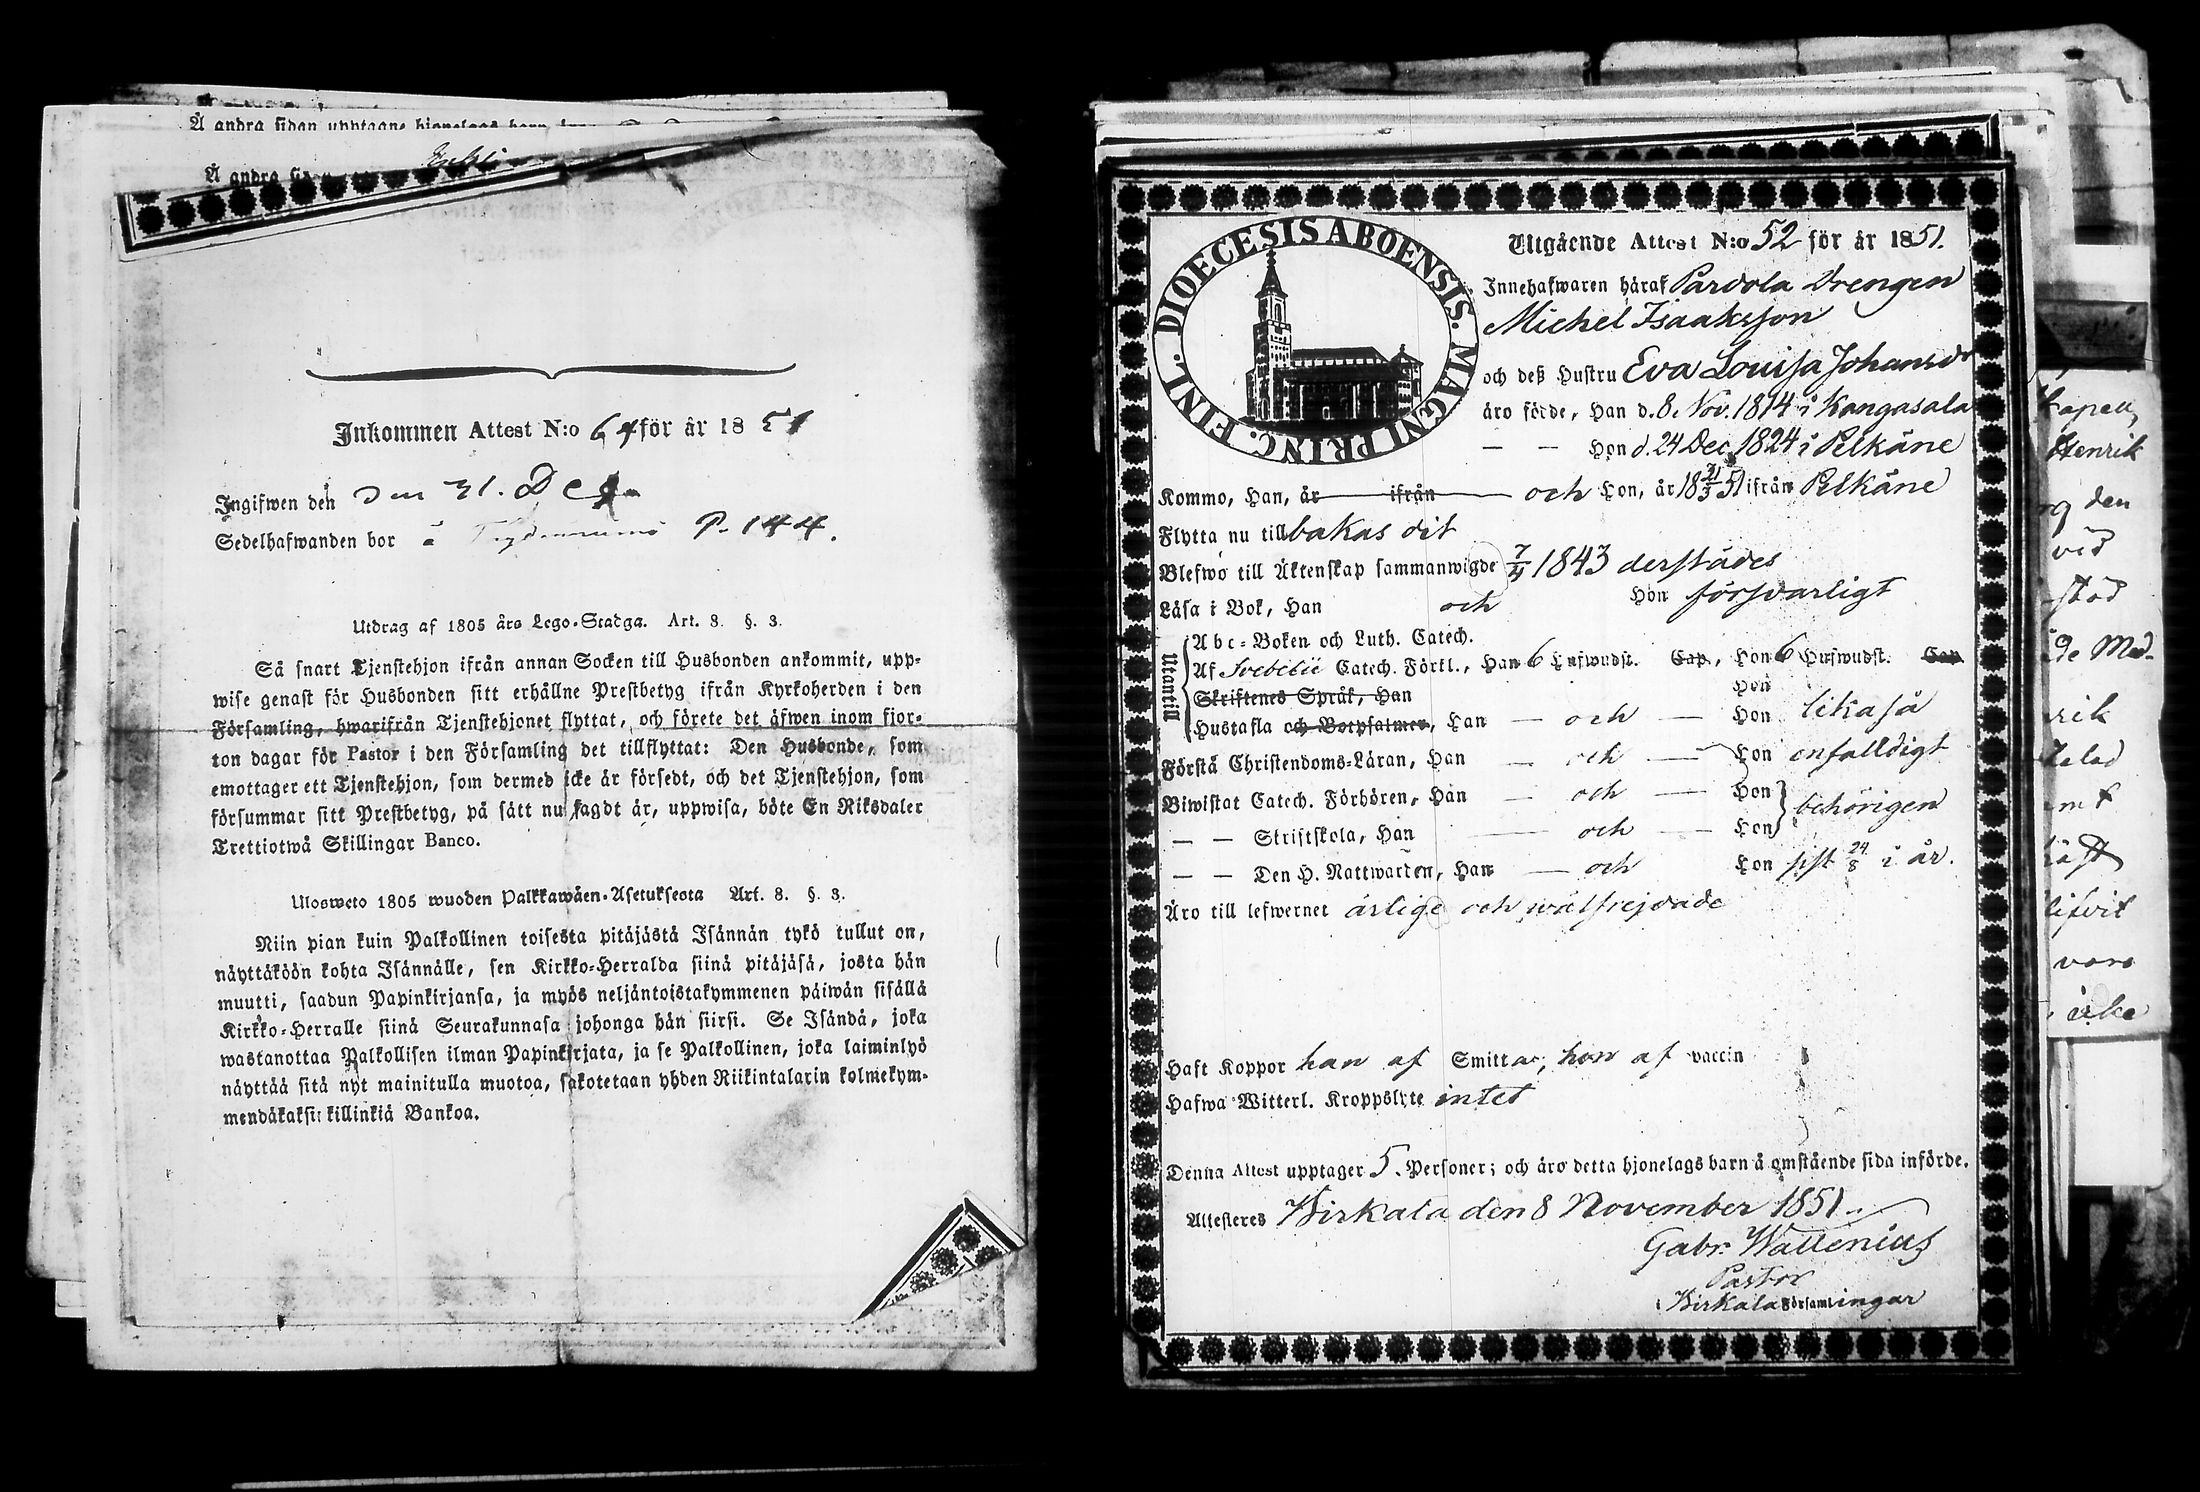 Å andra sidan upptagne hjonelags barn
Å andra
Inkommen Attest N:o 64 för år 1851
Ingifwen den den 31. Dec
Sedelhafwanden bor å P. 144.
Utdrag af 1805 års Lego-Stadga. Art. 8. §. 3.
Så snart Tjenstehjon ifrån annan Socken till Husbonden ankommit, upp-
wise genast för Husbonden sitt erhållne Prestbetyg ifrån Kyrkoherden i den
Församling, hwarifrån Tjenstehjonet flyttat, och förete det äfwen inom fjor-
ton dagar för Pastor i den Församling det tillflyttat: Den Husbonde, som
emottager ett Tjenstehjon, som dermed icke är försedt, och det Tjenstehjon, som
försummar sitt Prestbetyg, på sätt nu sagdt är, uppwisa, böte En Riksdaler
Trettiotwå Skillingar Banco.
Ulosweto 1805 wuoden Palkkawäen-Asetuksesta Art. 8. §. 3.
Niin pian kuin Palkollinen toisesta pitäjästä Isännän tykö tullut on,
näyttäköön kohta Isännälle, sen Kirkko-Herralda siinä pitäjäsä, josta hän
muutti, saadun Papinkirjansa, ja myös neljäntoistakymmenen päiwän sisällä
Kirkko-Herralle siinä Seurakunnasa johonga hän siirsi. Se Isändä, joka
wastanottaa Palkollisen ilman Papinkirjata, ja se Palkollinen, joka laiminlyö
näyttää sitä nyt mainitulla muotoa, sakotetaan yhden Riikintalarin kolmekym-
mendäkaksi killinkiä Bankoa.
DIOECESIS ABOENSIS. MAGNI PRINC. FINL.
Utgående Attest N:o 52 för år 1851.
Innehafwaren häraf Pardola Drengen
Michel Isaaksson
och deß Hustru Eva Louisa Johansdr
äro födde, Han d. 8 Nov. 1814 i Kangasala
— — Hon d. 24 Dec. 1824 i Pelkäne
Kommo, Han, år ifrån och Hon, år 18 21/3 51 ifrån Pelkäne
Flytta nu tillbakas dit
Blefwo till Äktenskap sammanwigde 7/4 1843 derstädes
Läsa i Bok, Han och Hon försvarligt
Utantill
Abc-Boken och Luth. Catech.
Af Svebelii Catech. Förkl., Han 6 Hufwudst. Cap, Hon 6 Hufwudst. Cap
Skriftenes Språk, Han Hon
Hustafla och Botpsalmer, Han — och — Hon likaså
Förstå Christendoms-Läran, Han — och — Hon enfaldigt
Biwistat Catech. Förhören, Han — och — Hon behörigen
— — Skriftskola, Han — och — Hon
— — Den H. Nattwarden, Han — och Hon sist 24/8 i år.
Äro till lefwernet ärlige och wälfrejdade
Haft Koppor han af Smittan, hon af vaccin
Hafwa Witterl. Kroppslyte intet
Denna Attest upptager 5. Personer; och äro detta hjonelags barn å omstående sida införde.
Attesteres Birkala den 8 November 1851.
Gabr. Wallenius
Pastor
i Birkala Församlingar
Henrik
den
vid
vara
icke